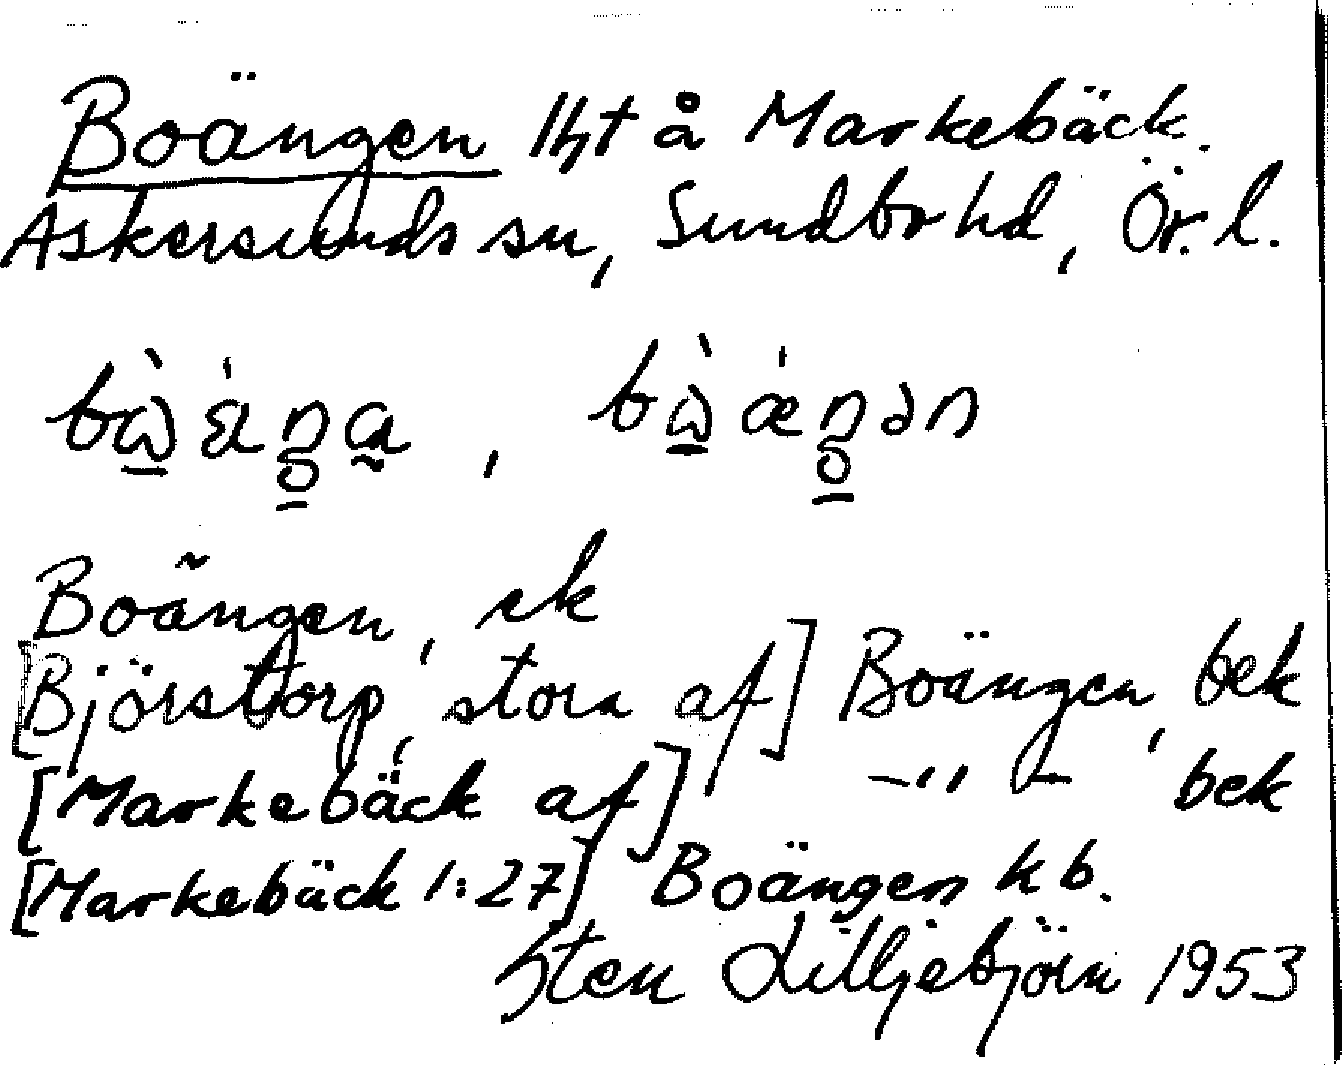 Boängen lht å Markebäck.
Askersunds sn, Sundbo hd, Ör. l.
Boängen, ek
[Björstorp, stora af] Boängen, bek
[Markebäck af] —"— bek
[Markebäck 1:27] Boängen kb.
Sten Lilljebjörn 1953